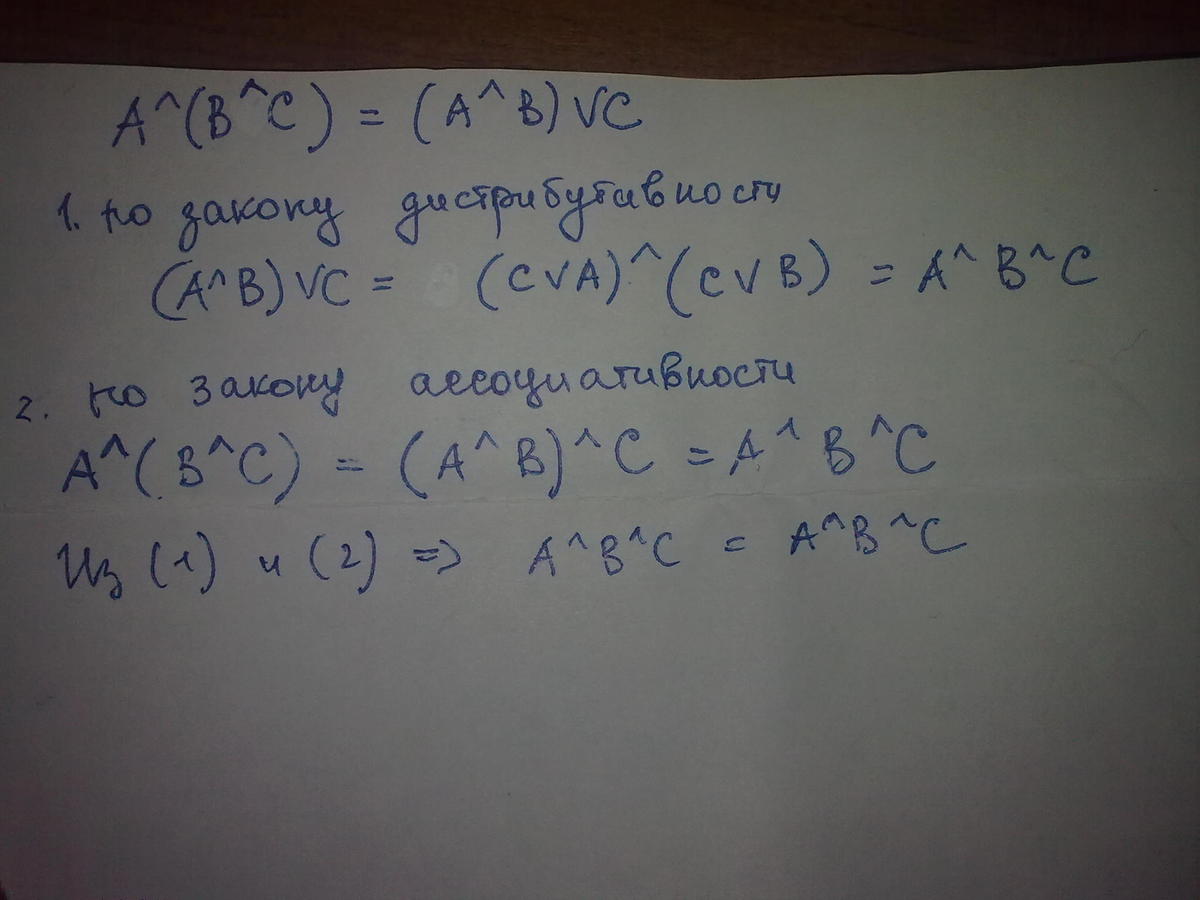 A^(B^C) = (A^B)VC
1. по закону дистрибутивности
(A^B)VC = (CVA)^(CVB) = A^B^C
2. по закону ассоциативности
A^(B^C) = (A^B)^C = A^B^C
Из (1) и (2) => A^B^C = A^B^C